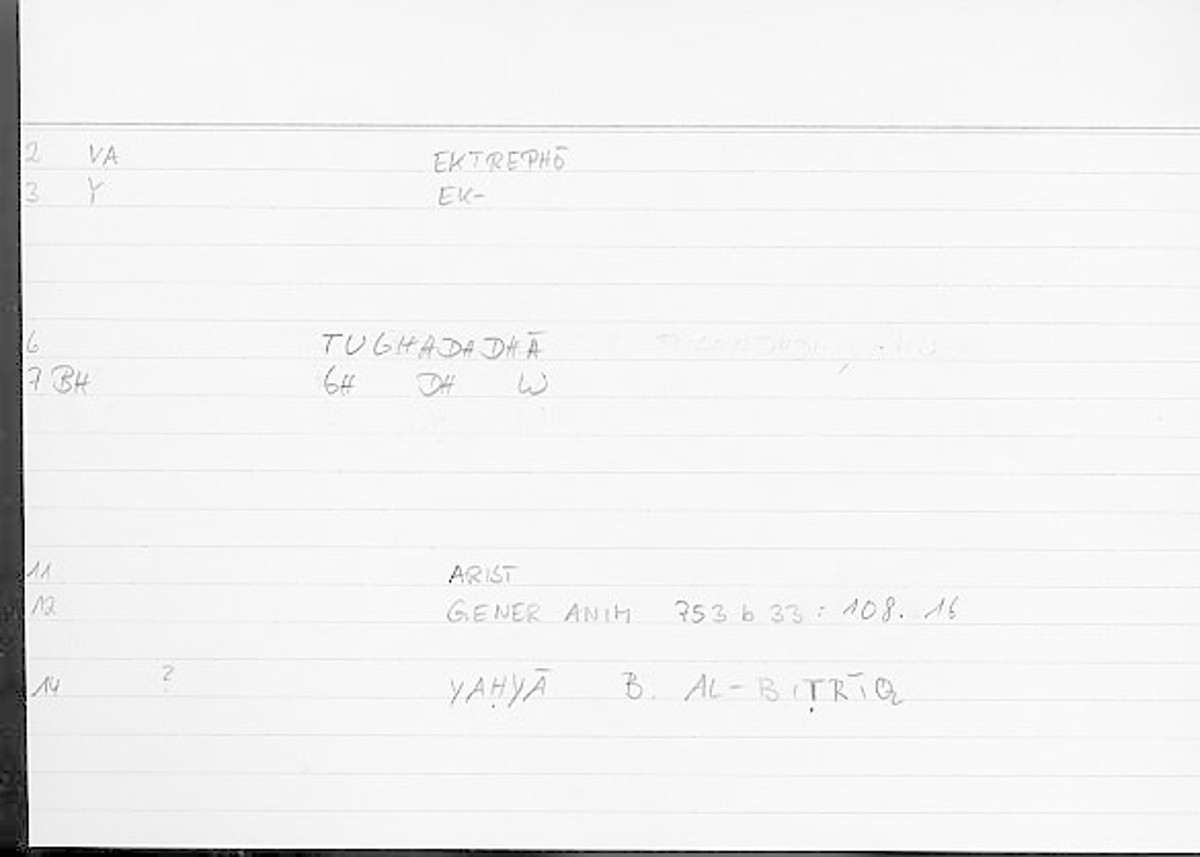 2 VA EKTREPHŌ
3 Y EK-
6 TUGHADADHĀ
7 BH GH DH W
11 ARIST
12 GENER ANIM 753 b 33 : 108. 16
?
14 YAḤYĀ B. AL-BIṬRĪQ